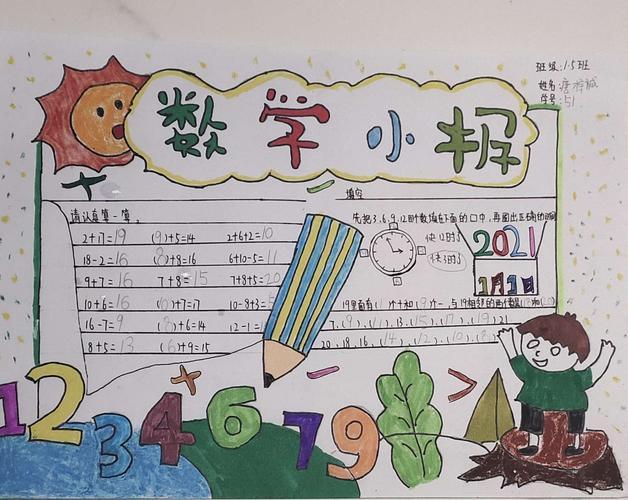 班级:1.5班
姓名:
学号:51
数学小报
填空
请认真算一算。
先把3,6,9,12时个数填在下面的口中,再画出正确的时间
2+17=19 (9)+5=14 2+6+2=10
快12时了
快3时了
2021
1月1日
18-2=16 (8)+8=16 6+10-5=11
9+7=16 7+8=15 7+8+5=20
10+6=16 ( )+7=17 10-8+3=5
19里面有(1)个十和(9)个一,与19相邻的两个数是
16-7=9 (8)+6=14 12-1=
7,(9),(11),13,(15),(17),(19),21
8+5=13 (6)+9=15
20,18,16,(14),(12),(10),(8)
+
-
1 2 3 4 6 7 9
>